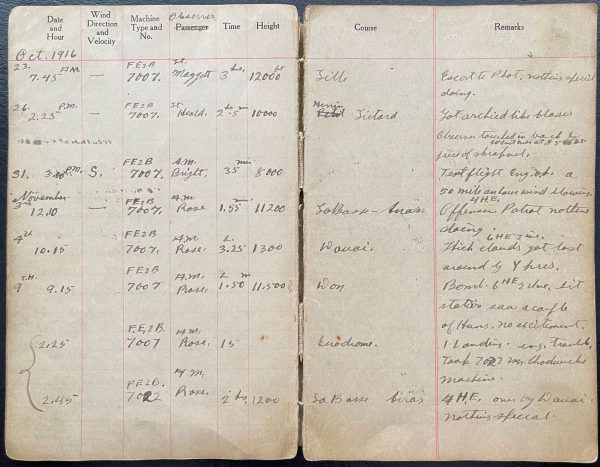 Date and Hour Wind Direction and Velocity Machine Type and No. Observer Passenger Time Height Course Remarks
Oct. 1916
23. 7.45 A.M. — FE2B 7007. Lt. Maggott 3 hrs. 12000 ft Lille Escort to Phot. nothing special
doing.
26. 2.25 P.M. — FE2B 7007. Lt. Heald. 10000 Lietard Got archied like blazes
Observer touched in back by
piece of shrapnel.
31. P.M. S. FE2B 7007. A.M. Bright. 35 min 8000 Test flight Eng. ok. a
50 mile an hour wind blowing.
November
3rd 12.10 FE2B 7007. A.M. Rose 1.55 min. 11200 La Basse – Arras 4 H.E.
Offensive Patrol nothing
doing.
4th 10.15 FE2B 7007. A.M. Rose. 3.25 1300 Douai. Thick clouds got lost
around by Ypres.
9 T.H. 9.15 FE2B 7007 A.M. Rose. 1.50 11.500 Don Bomb. 6 HE
station saw a couple
of Huns. no excitement.
2.25 FE2B. 7007 A.M. Rose. 15 Aerodrome. 1 Landing. eng. trouble.
Took 7022
machine.
2.45 FE2B. 7022 A.M. Rose. 2 hrs. 1200 La Basse Arras 4 H.E. over by Douai
nothing special.